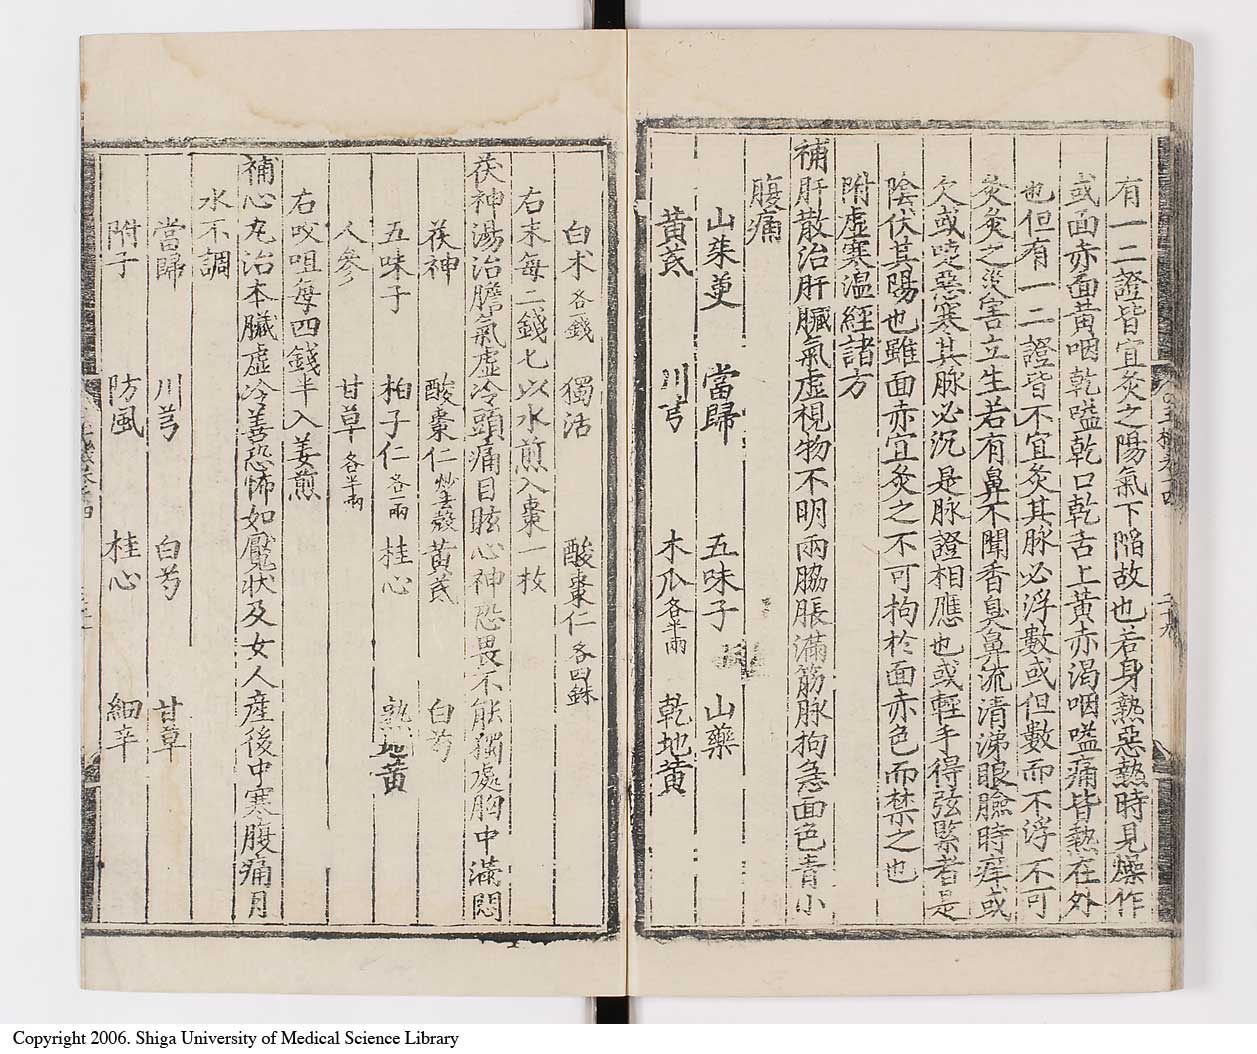 有一二證皆宜灸之陽氣下陷故也若身熱惡熱時見燥作
或面赤面黃咽乾嗌乾口乾舌上黃赤渴咽嗌痛皆熱在外
也但有一二證皆不宜灸其脉必浮數或但數而不浮不可
灸灸之災害立生若有鼻不聞香臭鼻流清涕眼臉時痒或
欠或嚏惡寒其脉必沉是脉證相應也或輕手得弦緊者是
陰伏其陽也雖面赤宜灸之不可拘於面赤色而禁之也
附虛寒溫經諸方
補肝散治肝臟氣虛視物不明兩脇脹滿筋脉拘急面色青小
腹痛
山茱萸 當歸 五味子 山藥
黃芪 川芎 木瓜各半兩 乾地黃
白术各一錢 獨活 酸棗仁各四銖
右末每二錢匕以水煎入棗一枚
茯神湯治膽氣虛冷頭痛目眩心神恐畏不能獨處胸中滿悶
茯神 酸棗仁炒去殼 黃芪 白芍
五味子 柏子仁各一兩 桂心 熟地黃
人參 甘草各半兩
右㕮咀每四錢半入姜煎
補心丸治本臟虛冷善恐怖如魘狀及女人產後中寒腹痛月
水不調
當歸 川芎 白芍 甘草
附子 防風 桂心 細辛
Copyright 2006. Shiga University of Medical Science Library